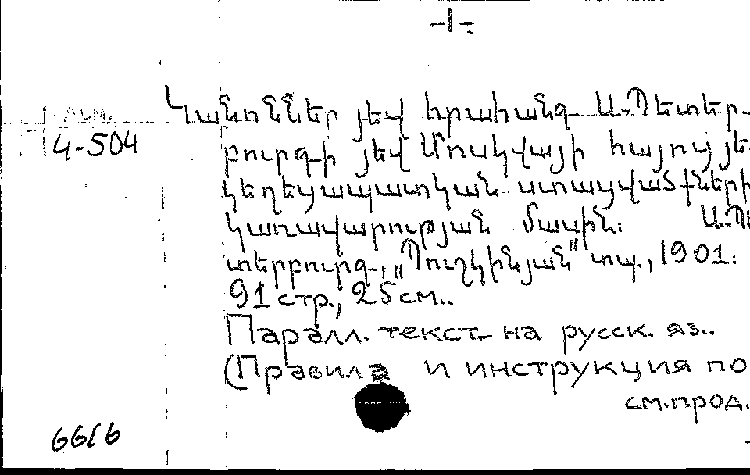 -1-
Կանոններ յեվ հրահանգ Ս-Պետեր-
4-504
բուրգի յեվ Մոսկվայի հայոց յե-
կեղեցապատկան ստացվածքների
կառավարության մասին: Ս-Պե
տերբուրգ, „Պուշկինյան" տպ., 1901:
91 стр., 25 см..
Паралл. текст на русск. яз..
(Правила и инструкция по
см.прод.
6616